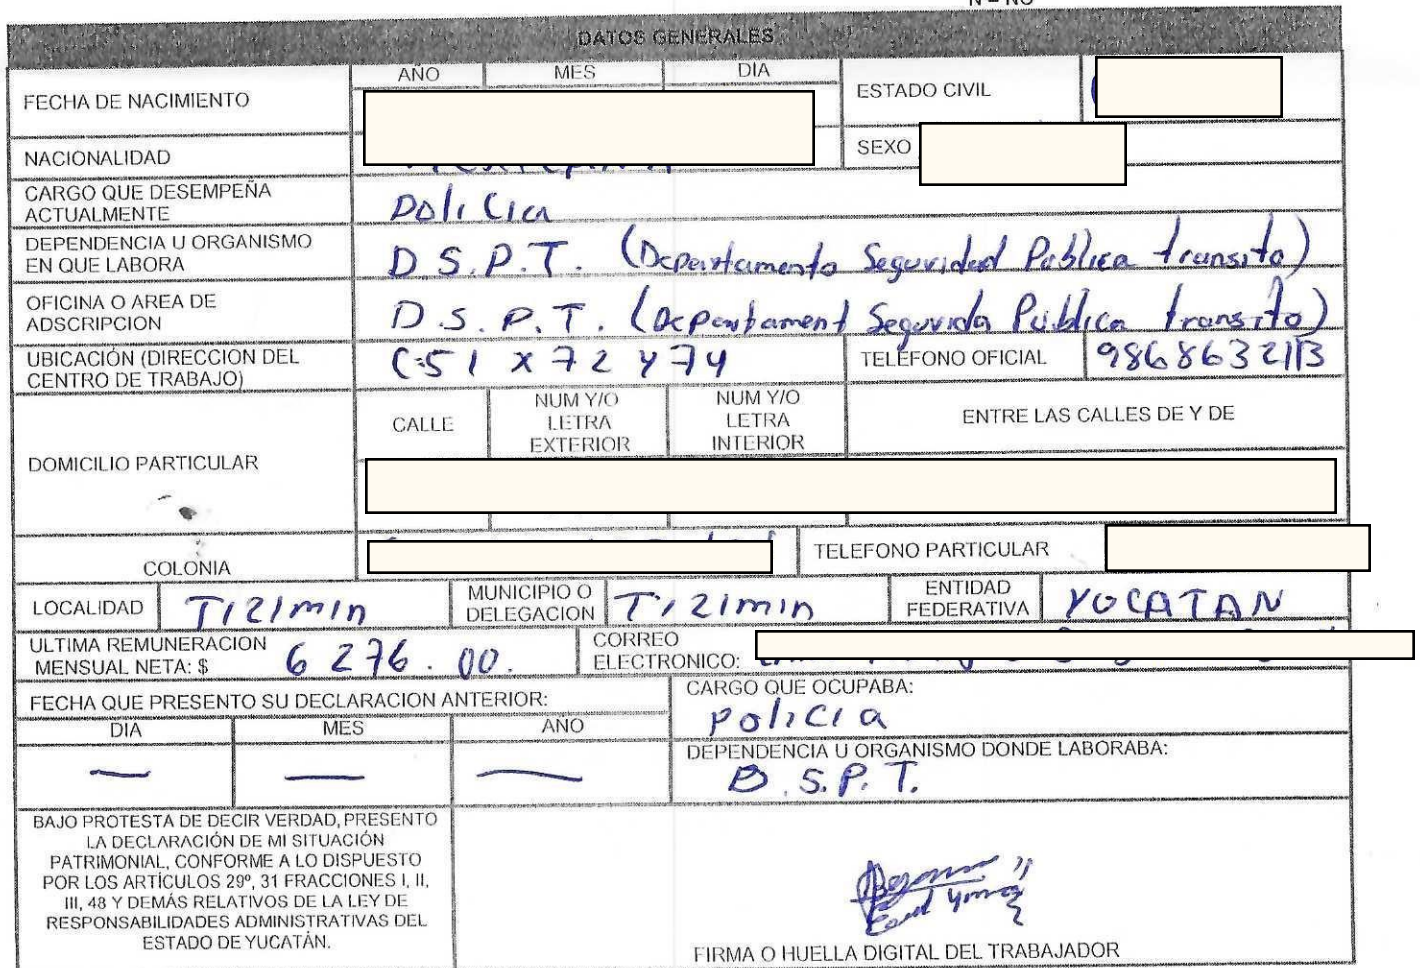 N = NO
DATOS GENERALES
AÑO MES DIA
FECHA DE NACIMIENTO ESTADO CIVIL
NACIONALIDAD SEXO
CARGO QUE DESEMPEÑA
ACTUALMENTE
Policia
DEPENDENCIA U ORGANISMO
EN QUE LABORA
D.S.P.T. (Departamento Seguridad Publica transito)
OFICINA O AREA DE
ADSCRIPCION
D.S.P.T. (Depantament Segurida Publica transito)
UBICACIÓN (DIRECCION DEL
CENTRO DE TRABAJO)
C:51 x 72 y 74
TELÉFONO OFICIAL 9868632113
DOMICILIO PARTICULAR
CALLE
NUM Y/O
LETRA
EXTERIOR
NUM Y/O
LETRA
INTERIOR
ENTRE LAS CALLES DE Y DE
COLONIA TELEFONO PARTICULAR
LOCALIDAD Tizimin
MUNICIPIO O
DELEGACION
Tizimin
ENTIDAD
FEDERATIVA
YUCATAN
ULTIMA REMUNERACION
MENSUAL NETA: $ 6 276.00.
CORREO
ELECTRONICO:
FECHA QUE PRESENTO SU DECLARACION ANTERIOR:
DIA MES AÑO
— — —
CARGO QUE OCUPABA:
Policia
DEPENDENCIA U ORGANISMO DONDE LABORABA:
D.S.P.T.
BAJO PROTESTA DE DECIR VERDAD, PRESENTO
LA DECLARACIÓN DE MI SITUACIÓN
PATRIMONIAL, CONFORME A LO DISPUESTO
POR LOS ARTÍCULOS 29º, 31 FRACCIONES I, II,
III, 48 Y DEMÁS RELATIVOS DE LA LEY DE
RESPONSABILIDADES ADMINISTRATIVAS DEL
ESTADO DE YUCATÁN.
FIRMA O HUELLA DIGITAL DEL TRABAJADOR